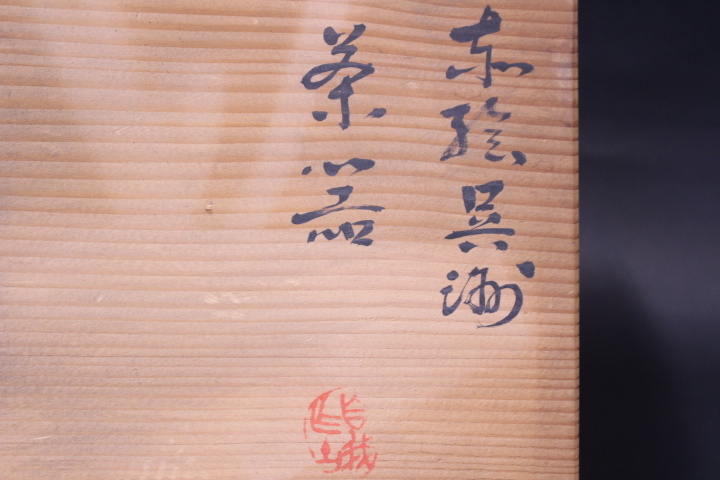 赤絵呉洲
茶器